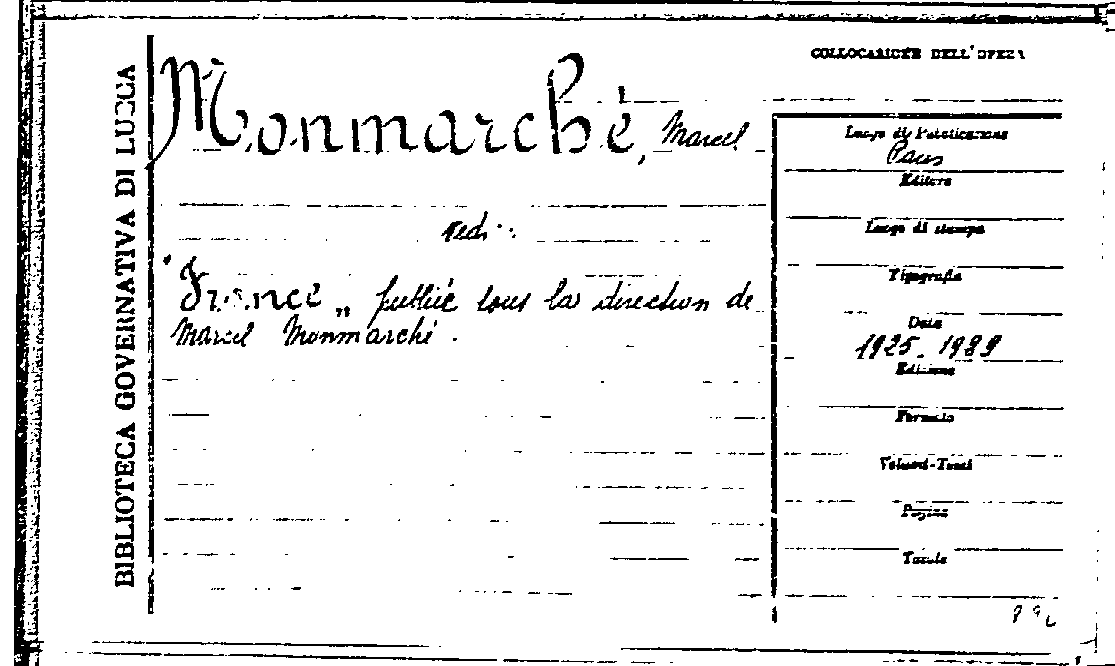 BIBLIOTECA GOVERNATIVA DI LUCCA
COLLOCAZIONE DELL'OPERA
Monmarché, Marcel
Luogo di Pubblicazione
Paris
Editore
Luogo di stampa
vedi:
Tipografia
"France„ publié sous la direction de
Marcel Monmarché.
Data
1925-1939
Edizione
Formato
Volumi-Tomi
Pagine
Tavole